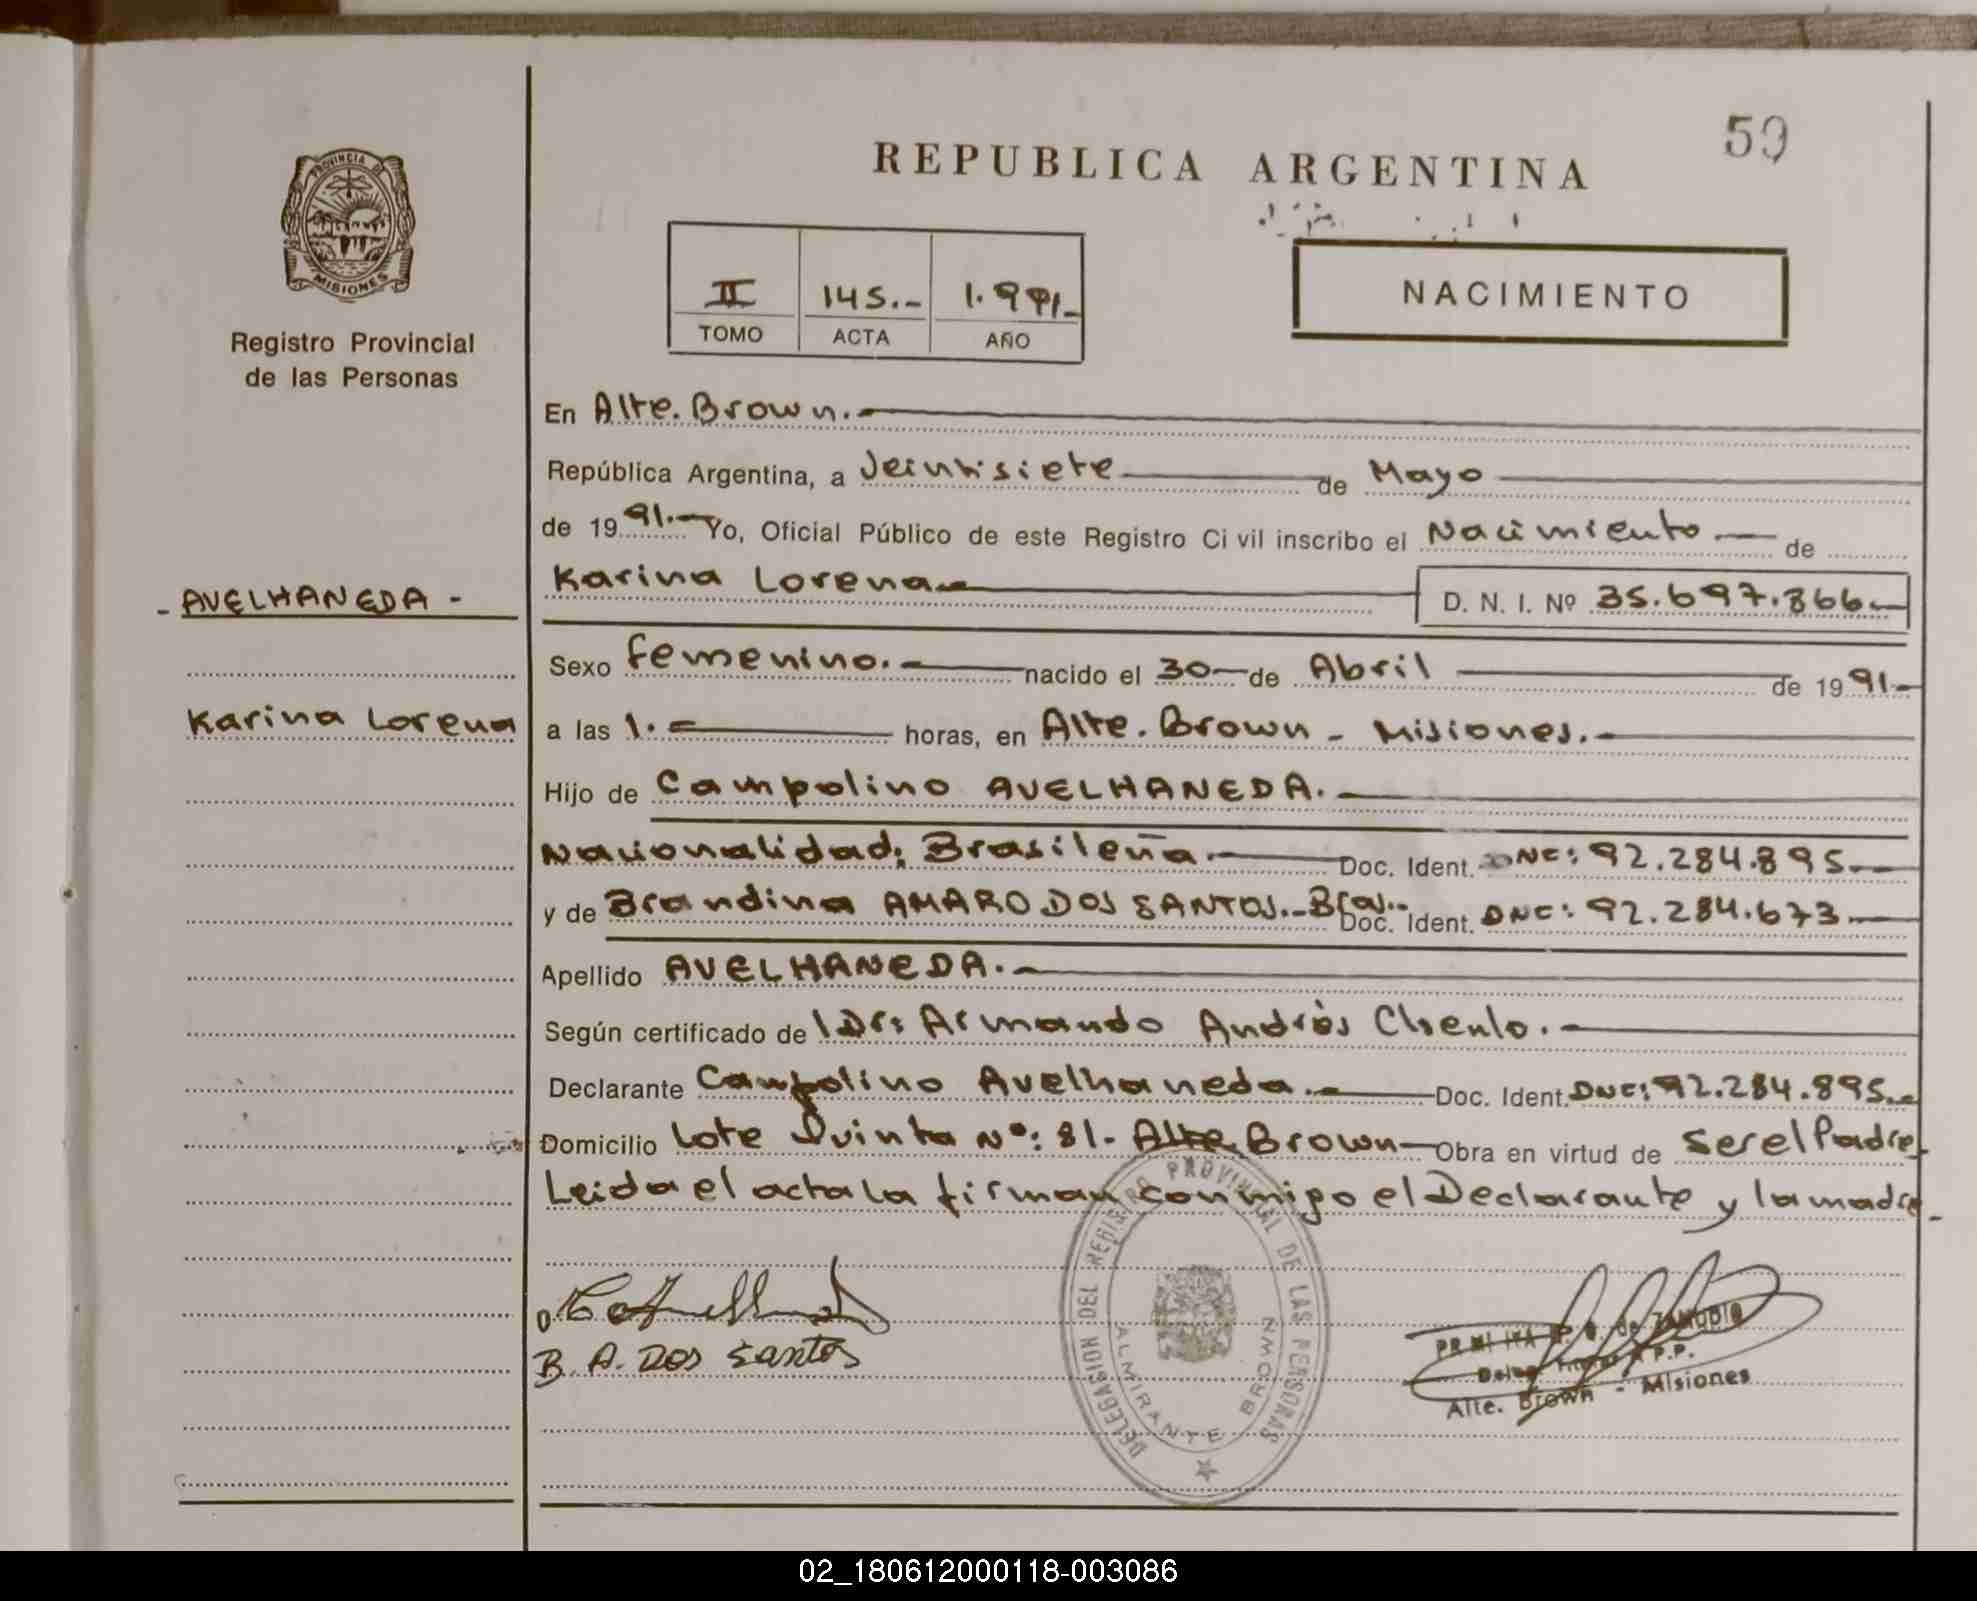 59
REPUBLICA ARGENTINA
PROVINCIA DE
MISIONES
Registro Provincial
de las Personas
II 145.- 1.991.-
TOMO ACTA AÑO
NACIMIENTO
En Alte. Brown.-
República Argentina, a Veintisiete de Mayo
de 19 91.- Yo, Oficial Público de este Registro Civil inscribo el Nacimiento de
Karina Lorena.- D. N. I. Nº 35.697.866.-
- AVELHANEDA -
Karina Lorena
Sexo femenino.- nacido el 30 de Abril de 19 91.-
a las 1.- horas, en Alte. Brown - Misiones.-
Hijo de Campolino AVELHANEDA.-
Nacionalidad: Brasileña.- Doc. Ident. DNE: 92.284.895.-
y de Brandina AMARO DOS SANTOS.-Bras.- Doc. Ident. DNE: 92.284.673.-
Apellido AVELHANEDA.-
Según certificado de Dr: Armando Andrés
Declarante Campolino Avelhaneda.- Doc. Ident. DNE: 92.284.895.-
Domicilio Lote Quinta Nº: 81- Alte. Brown- Obra en virtud de Ser el Padre-
Leida el acta la firman conmigo el Declarante y la madre-
B. A. Dos Santos
DELEGACION DEL REGISTRO PROVINCIAL DE LAS PERSONAS
ALMIRANTE BROWN
de ZAMUDIO
Alte. Brown - Misiones
02_180612000118-003086